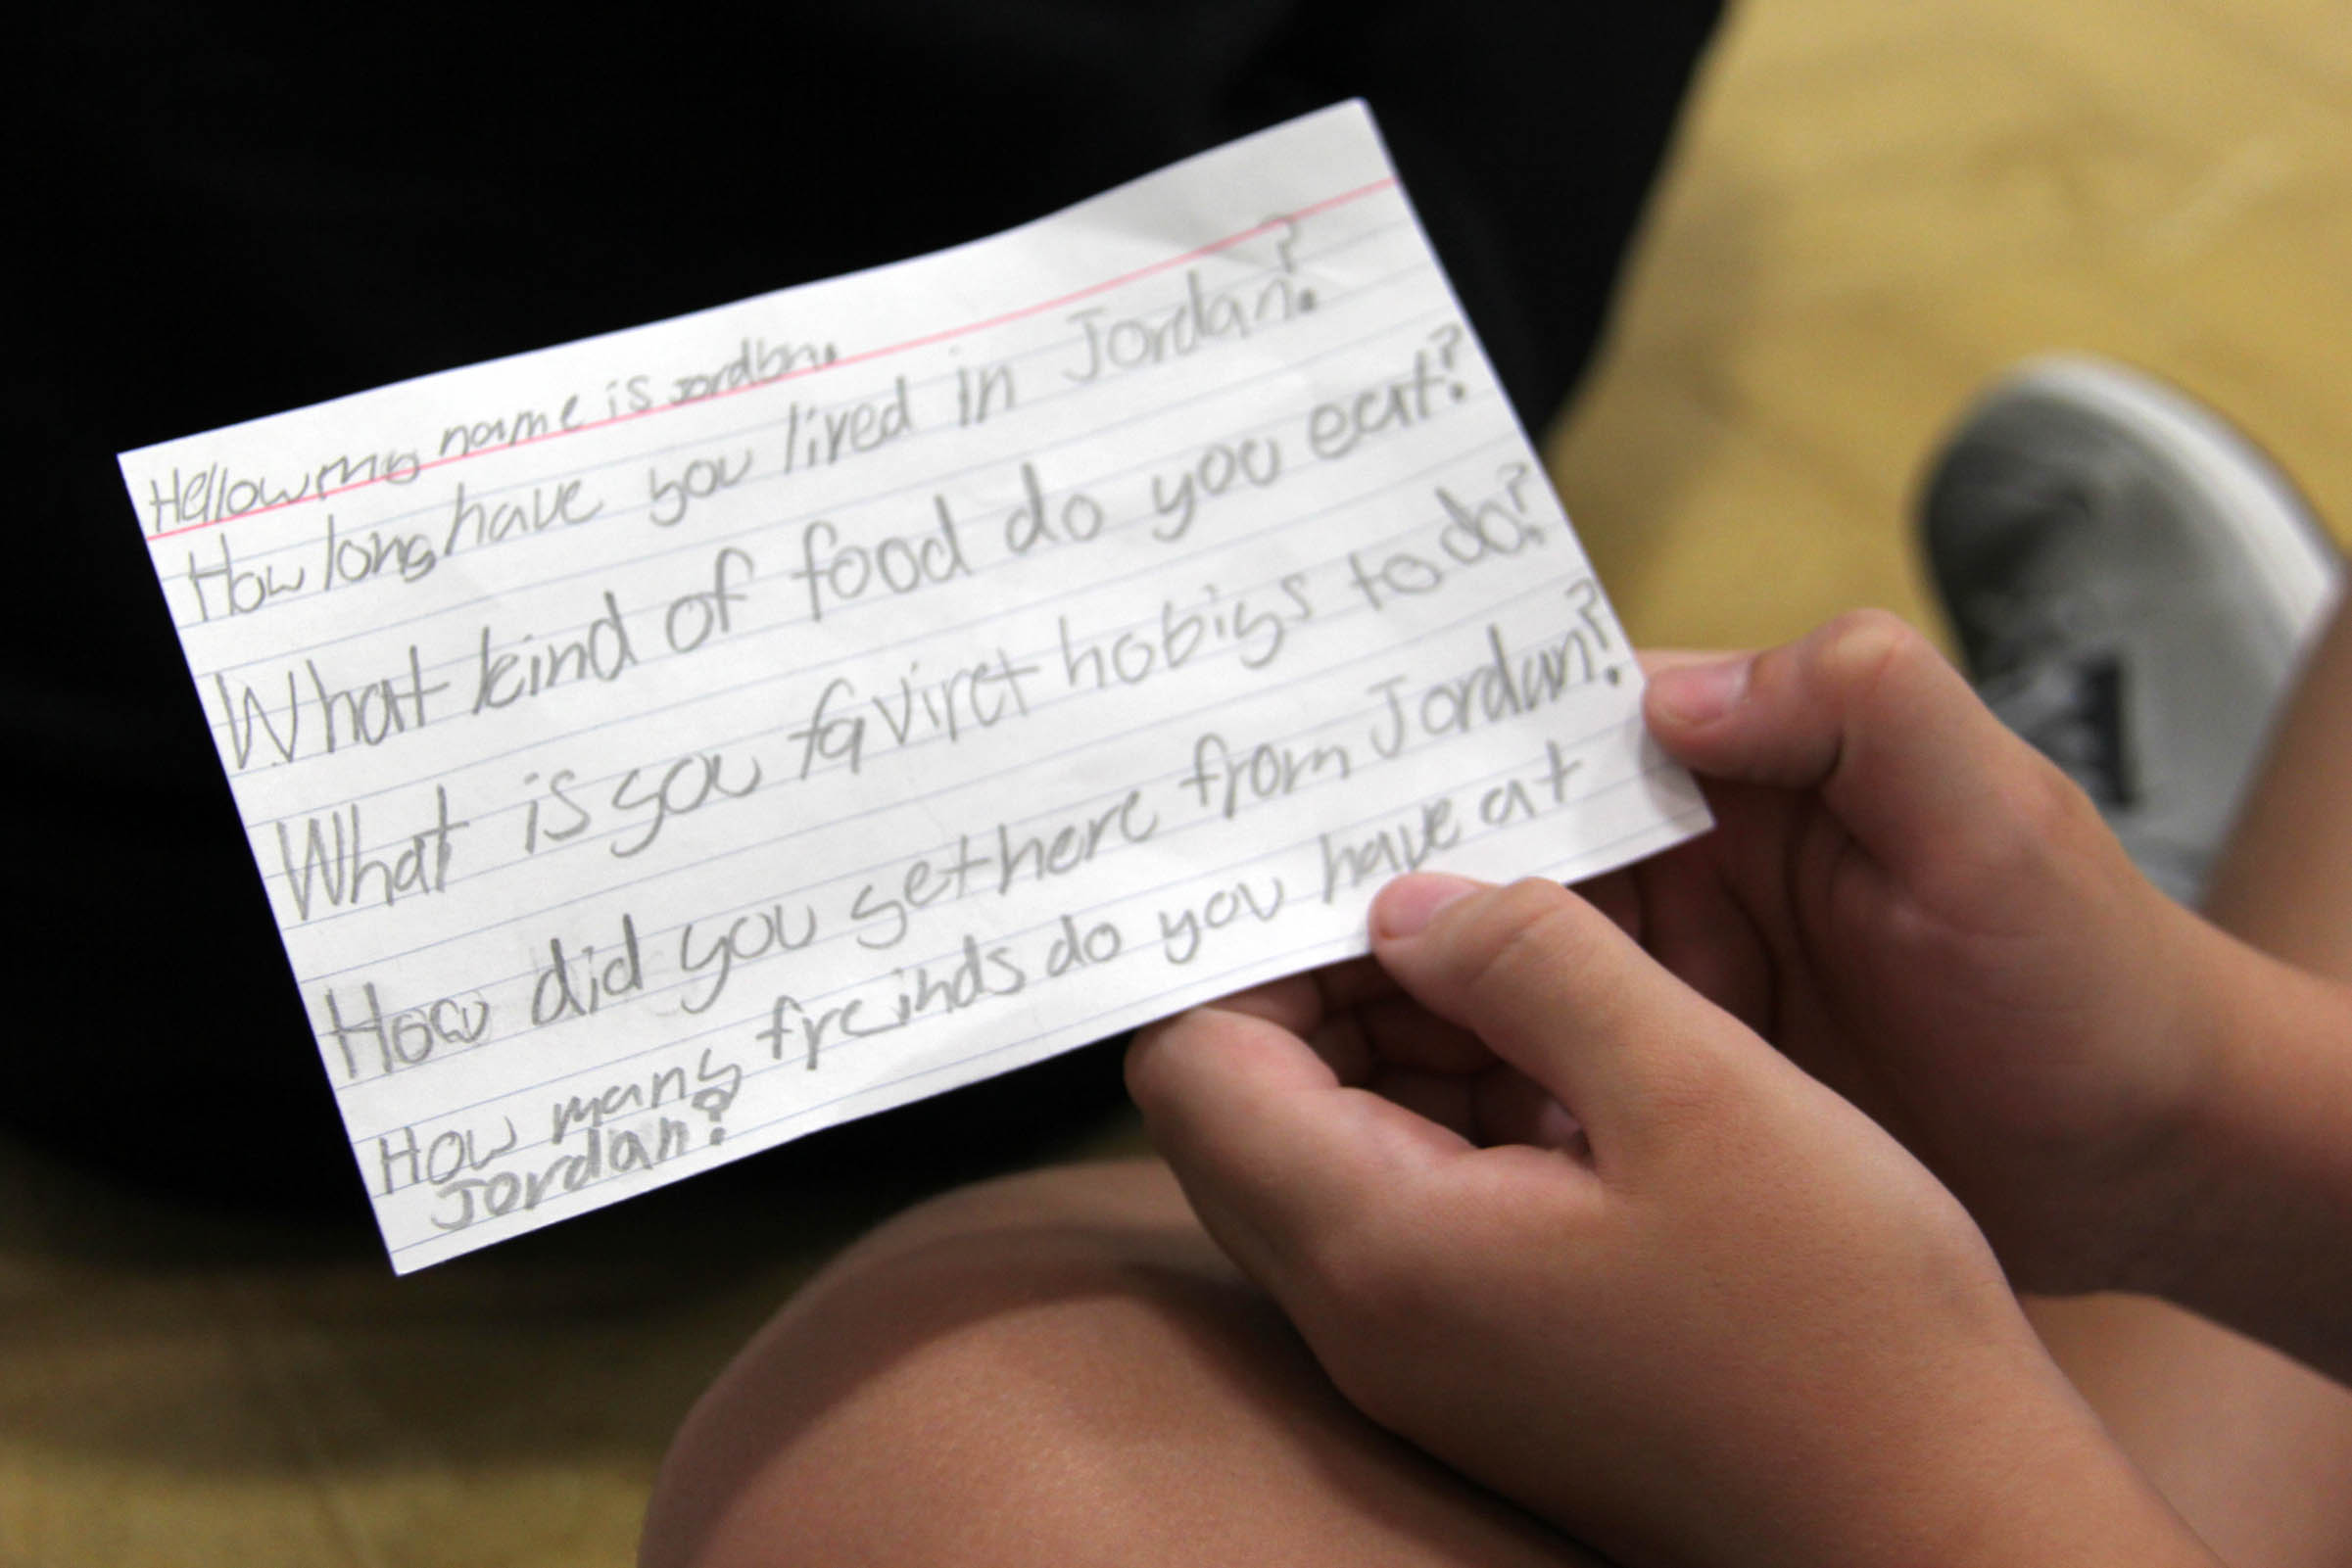 Hellow my name is Jordan.
How long have you lived in Jordan?
What kind of food do you eat?
What is you faviret hobigs to do?
How did you get here from Jordan?
How many freinds do you have at
Jordan?